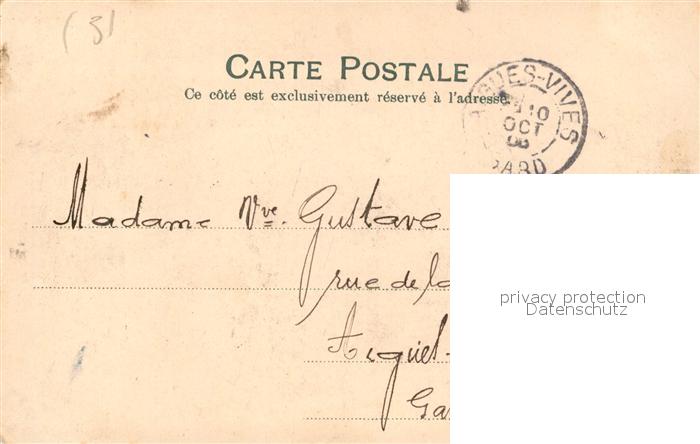 (3)
CARTE POSTALE
Ce côté est exclusivement réservé à l'adresse.
AIGUES-VIVES
10
OCT
GARD
Madame Vve. Gustave
rue de la
privacy protection
Datenschutz